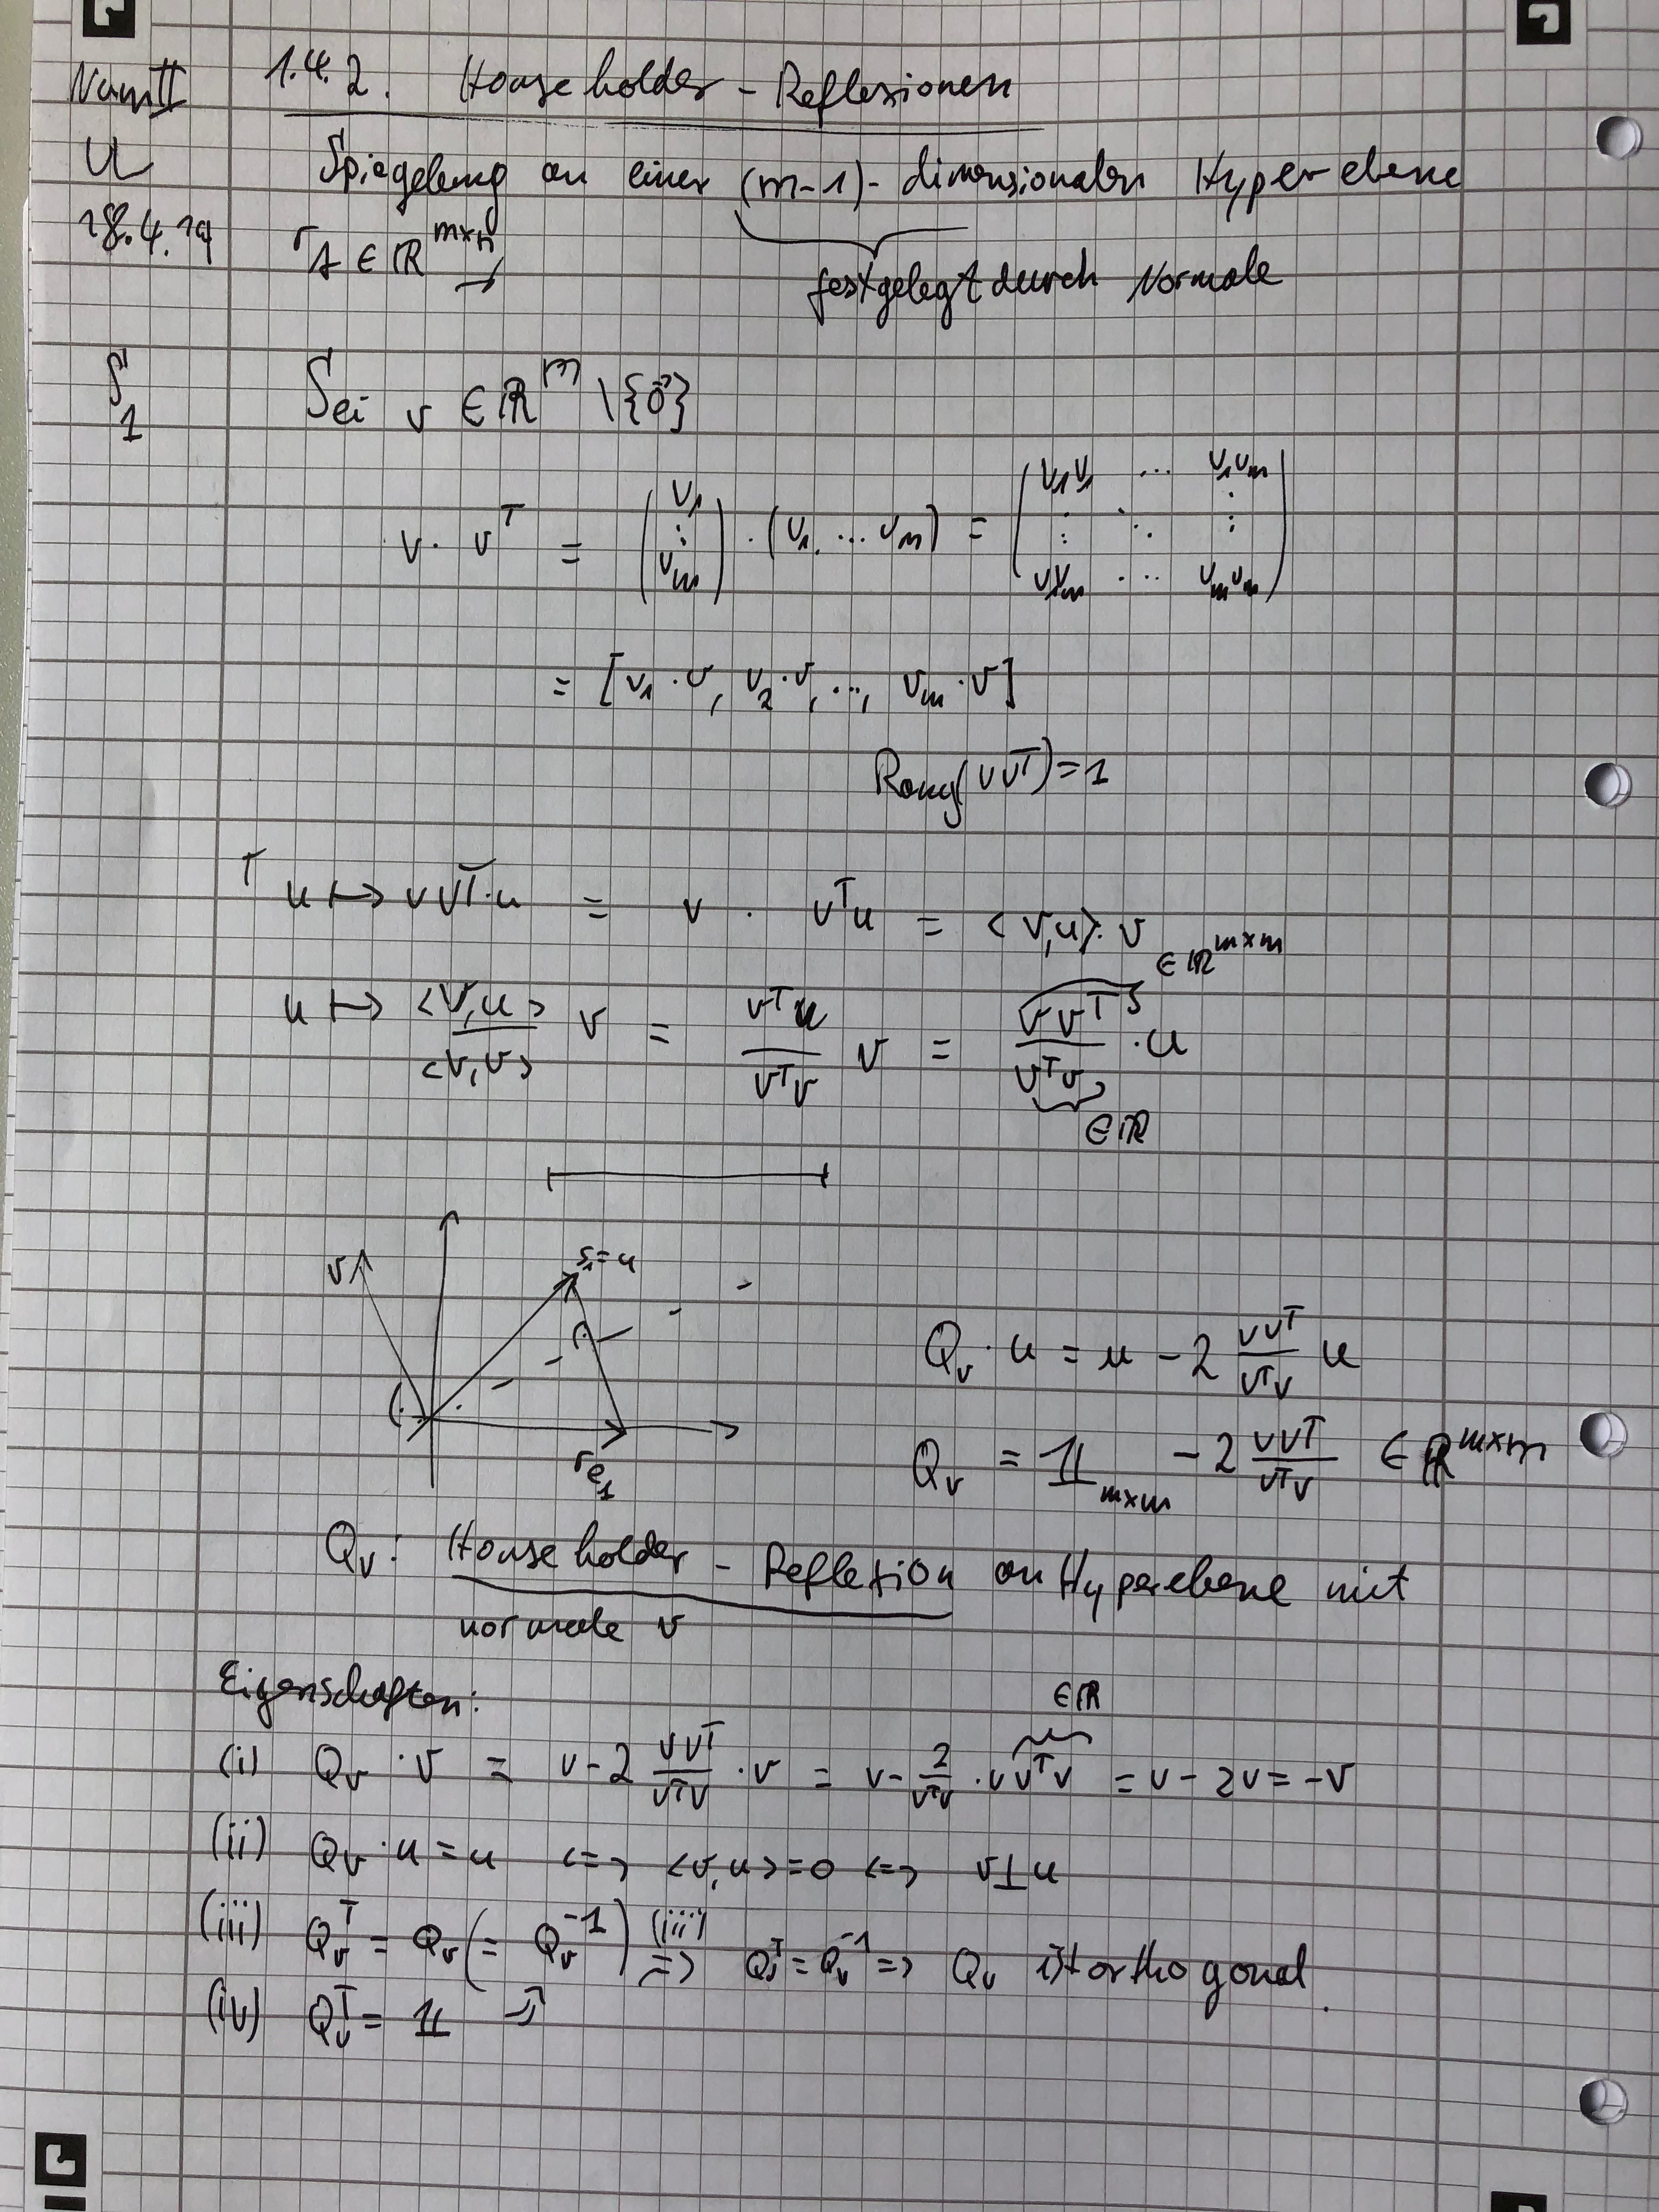 NumII 1.4.2. Householder-Reflexionen
U Spiegelung an einer (m-1)-dimensionalen Hyperebene
18.4.19 A ∈ ℝ^{m×n} → festgelegt durch Normale
S1 Sei v ∈ ℝ^m \ {0⃗}
v · v^T = (v₁ ⋮ v_m) · (v₁, … v_m) = (v₁v₁ … v₁v_m ⋮ ⋱ ⋮ v₁v_m … v_mv_m)
= [v₁·v, v₂·v, …, v_m·v]
Rang(vv^T) = 1
u ↦ vv^T·u = v · v^Tu = <v,u>·v
∈ ℝ^{m×m}
u ↦ <v,u>/<v,v> v = v^Tu/v^Tv v = vv^T/v^Tv · u
∈ ℝ
v s₁=u
Q_v · u = u - 2 vv^T/v^Tv u
r e₁
Q_v = 𝟙_{m×m} - 2 vv^T/v^Tv ∈ ℝ^{m×m}
Q_v: Householder-Reflexion an Hyperebene mit
normale v
Eigenschaften:
∈ ℝ
(i) Q_v · v = v - 2 vv^T/v^Tv · v = v - 2/v^Tv · v v^Tv = v - 2v = -v
(ii) Q_v · u = u <=> <v,u> = 0 <=> v⊥u
(iii) Q_v^T = Q_v (= Q_v^{-1}) (iii) => Q_v^T = Q_v^{-1} => Q_v ist orthogonal.
(iv) Q_v^T = 𝟙